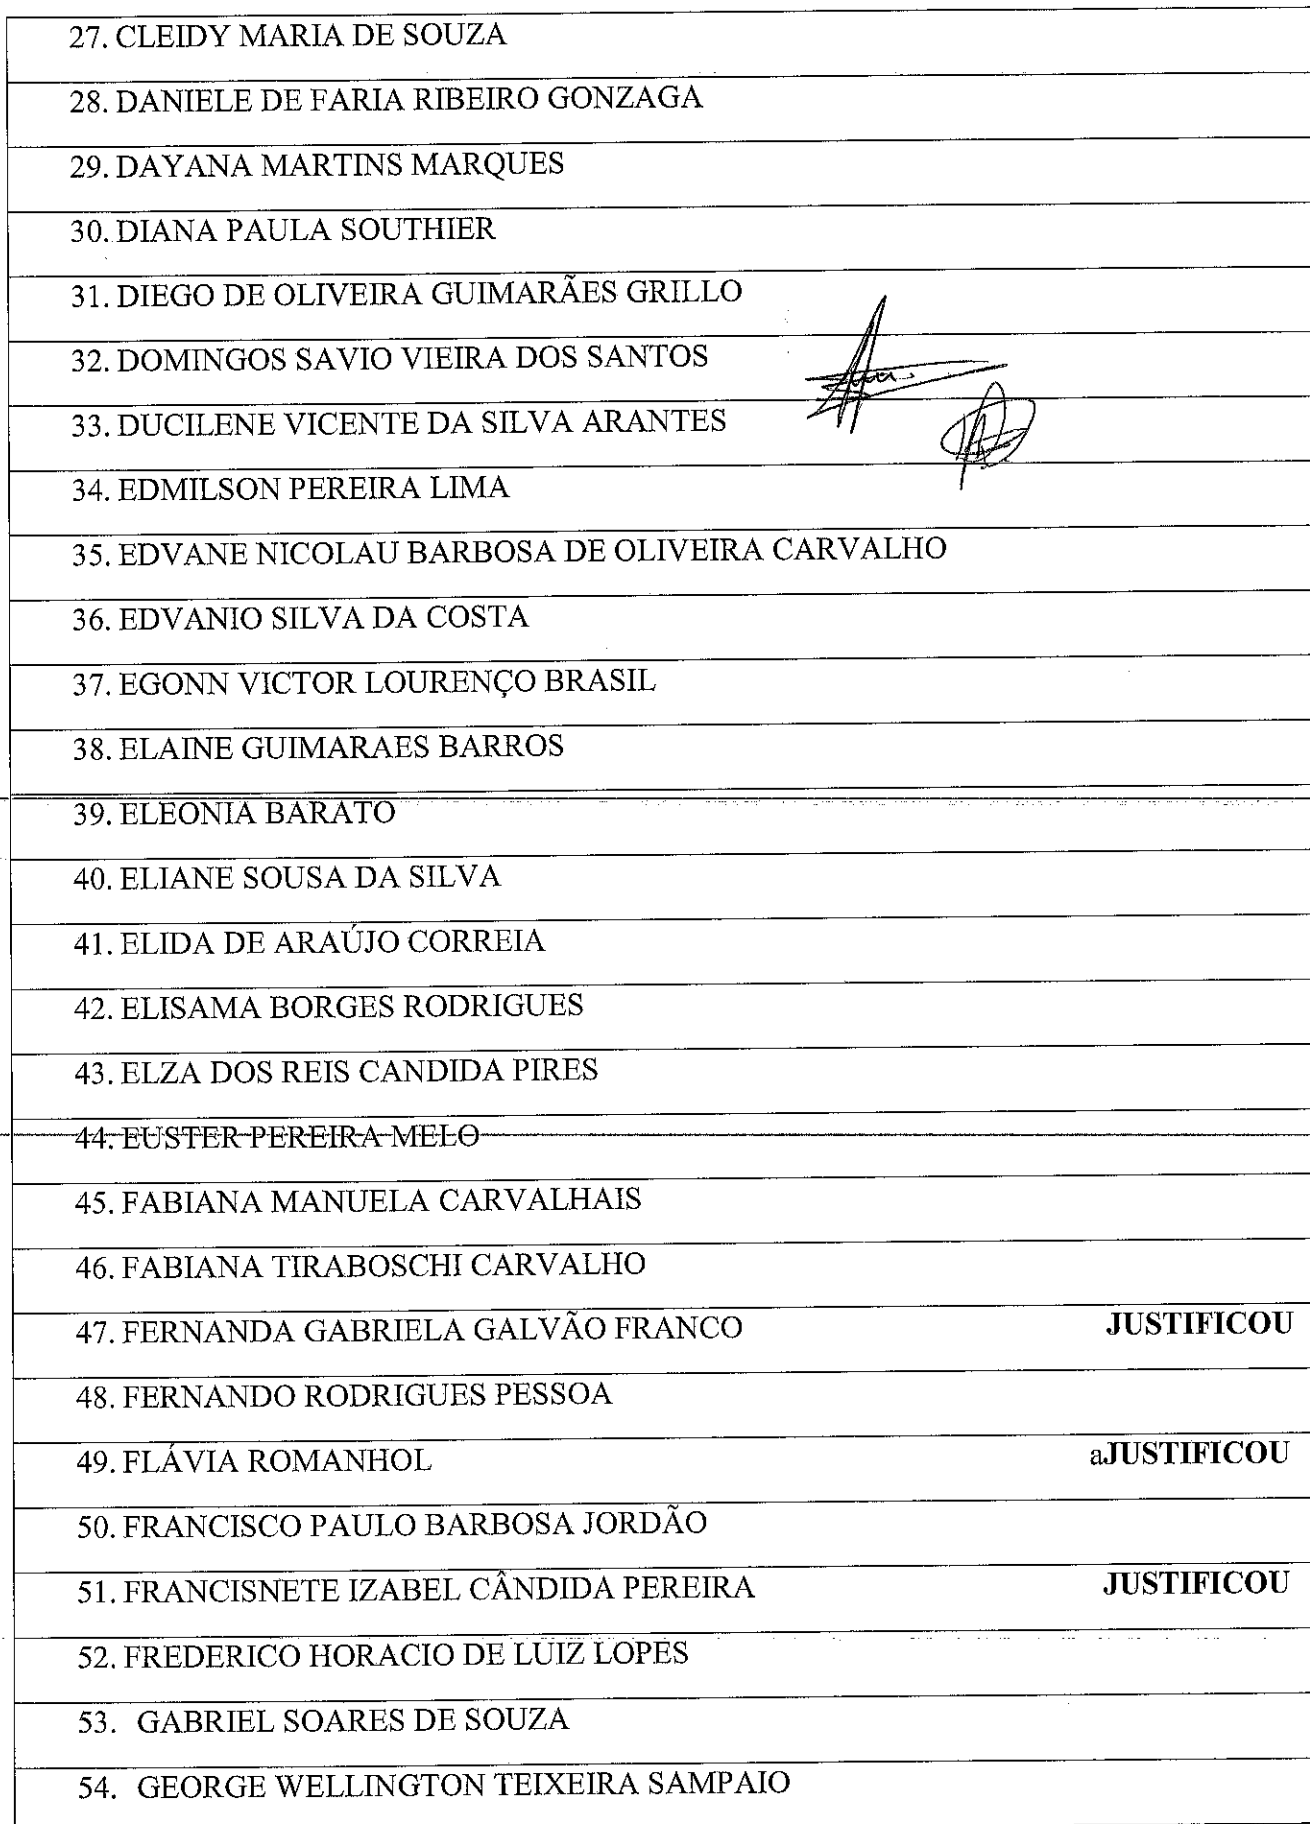 27. CLEIDY MARIA DE SOUZA
28. DANIELE DE FARIA RIBEIRO GONZAGA
29. DAYANA MARTINS MARQUES
30. DIANA PAULA SOUTHIER
31. DIEGO DE OLIVEIRA GUIMARÃES GRILLO
32. DOMINGOS SAVIO VIEIRA DOS SANTOS
33. DUCILENE VICENTE DA SILVA ARANTES
34. EDMILSON PEREIRA LIMA
35. EDVANE NICOLAU BARBOSA DE OLIVEIRA CARVALHO
36. EDVANIO SILVA DA COSTA
37. EGONN VICTOR LOURENÇO BRASIL
38. ELAINE GUIMARAES BARROS
39. ELEONIA BARATO
40. ELIANE SOUSA DA SILVA
41. ELIDA DE ARAÚJO CORREIA
42. ELISAMA BORGES RODRIGUES
43. ELZA DOS REIS CANDIDA PIRES
44. EUSTER PEREIRA MELO
45. FABIANA MANUELA CARVALHAIS
46. FABIANA TIRABOSCHI CARVALHO
47. FERNANDA GABRIELA GALVÃO FRANCO JUSTIFICOU
48. FERNANDO RODRIGUES PESSOA
49. FLÁVIA ROMANHOL aJUSTIFICOU
50. FRANCISCO PAULO BARBOSA JORDÃO
51. FRANCISNETE IZABEL CÂNDIDA PEREIRA JUSTIFICOU
52. FREDERICO HORACIO DE LUIZ LOPES
53. GABRIEL SOARES DE SOUZA
54. GEORGE WELLINGTON TEIXEIRA SAMPAIO